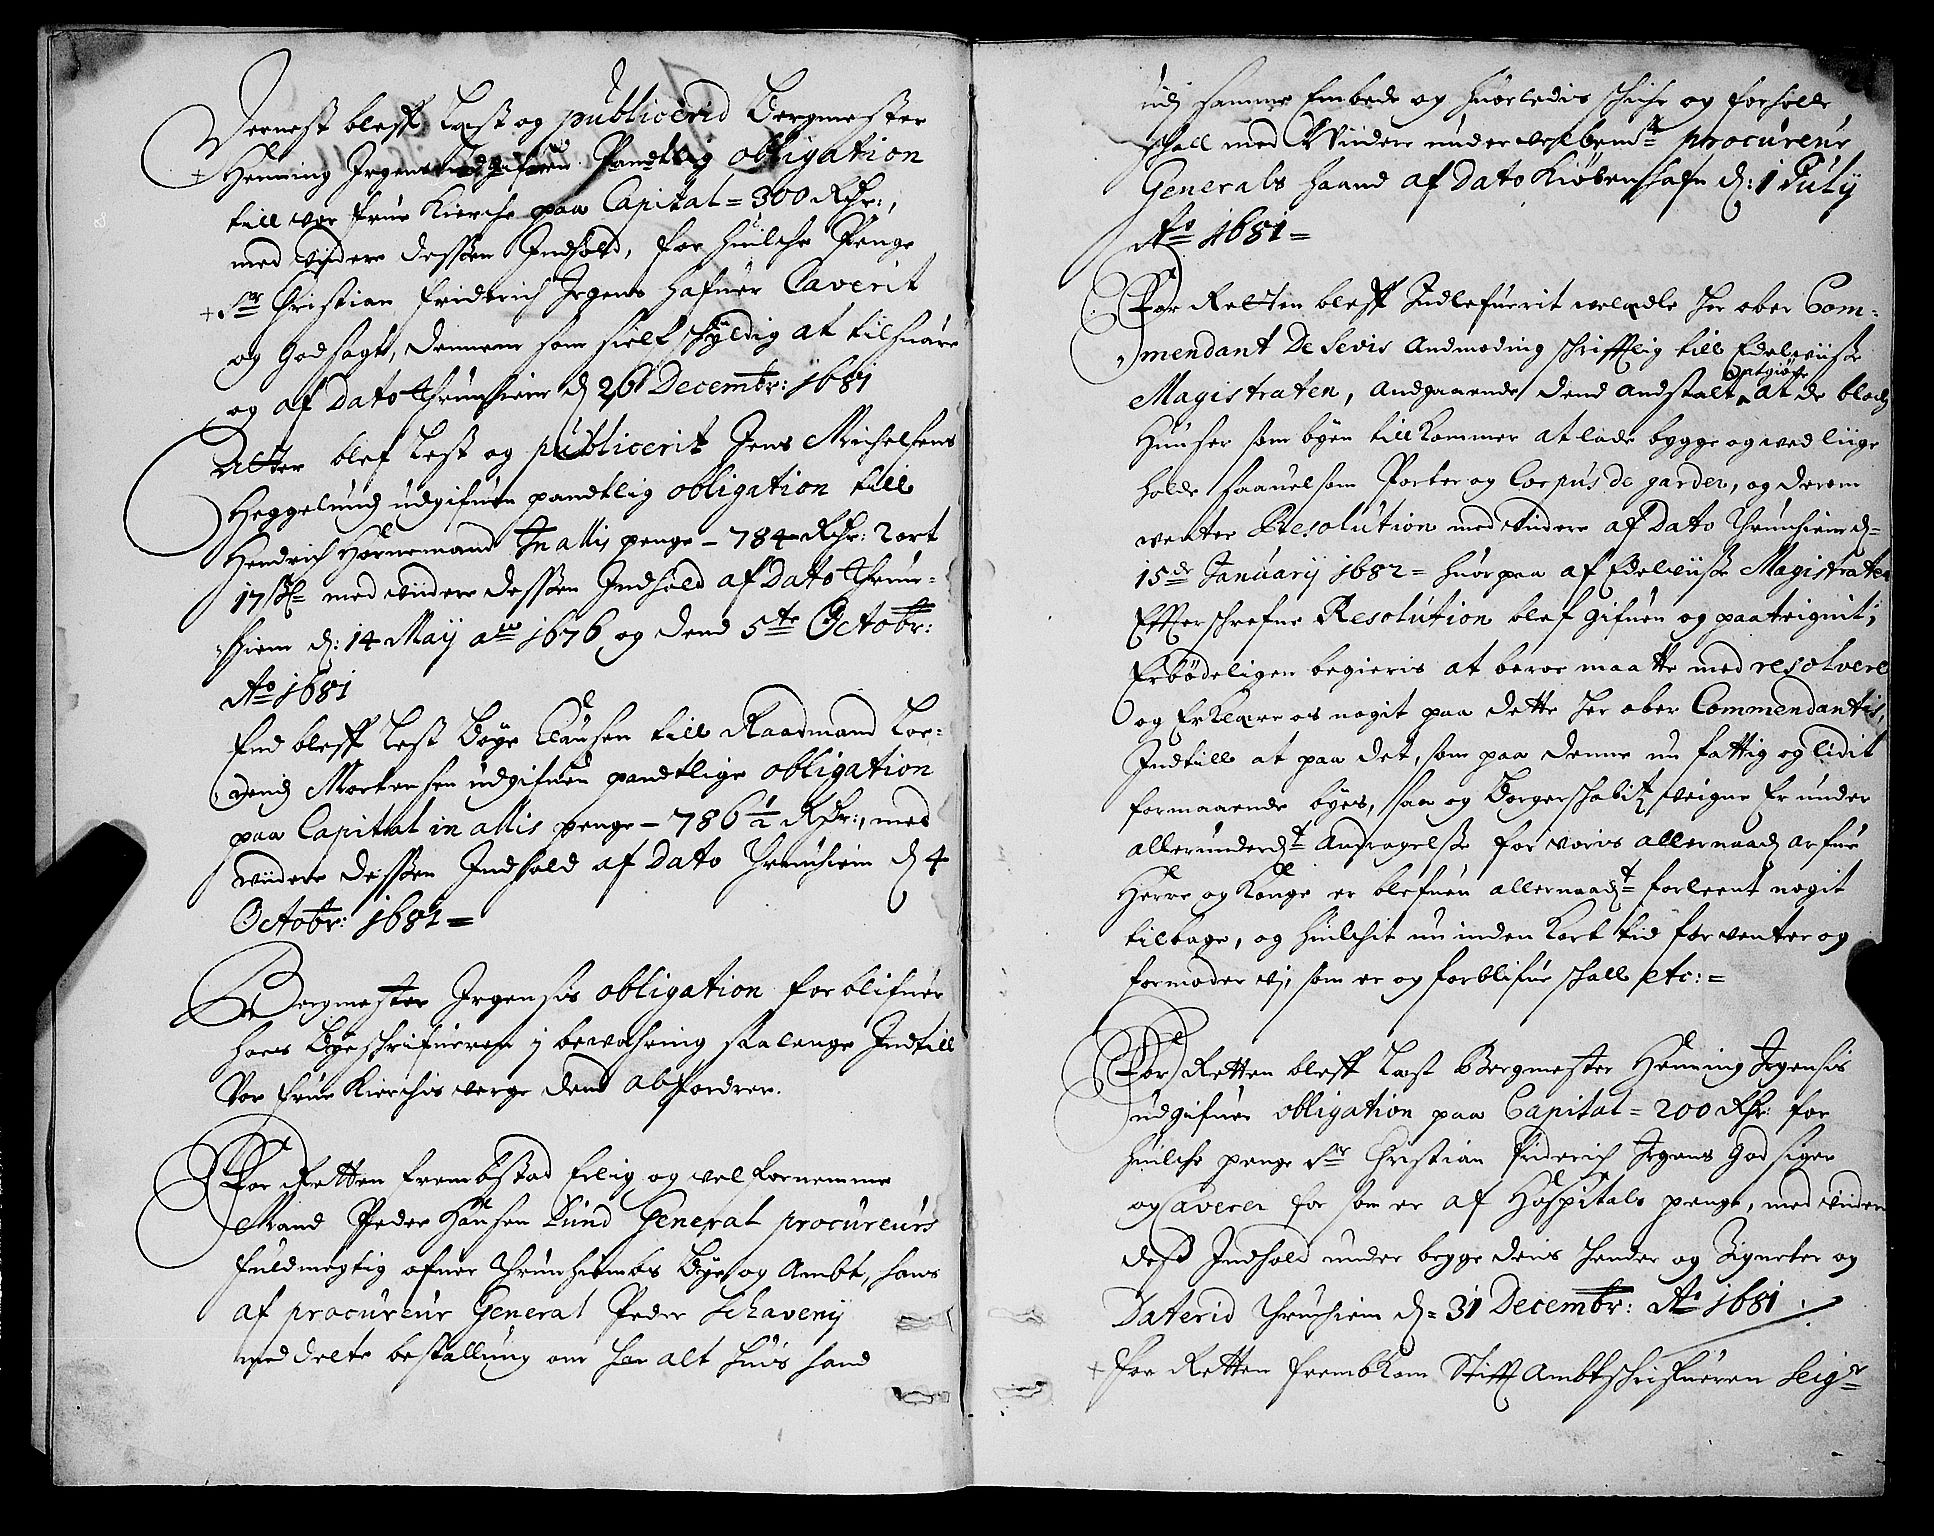 Dernest bleff Lest og publicerid Bergmester
Henning Irgens udgifuen Pandtlig obligation
till vor frue Kierche paa Capital = 300 Rdr:,
med videre dessen Indhold, for huilche Penge
Sr Christian Fridrich Irgens hafuer Caverit
og godsagt, dennem som sielf schyldig at tilsuare
og af Dato Thrundhiem d 26 Decembr: 1681
Atter blef Lest og publicerit Jens Michelsens
Heggelund udgifuen pandtlig obligation till
Hendrich Hornemand In allis penge - 784 Rdr: 2 ort
17 sk= med viidere dessen Indhold af Dato Thrun-
hiem d: 14 Maij ao 1676 og dend 5te Octobr:
Ao 1681
End bleff Lest Boye Clausen till Raadmand Lor-
rendz Mortensen udgifuen pandtlige obligation
paa Capital in allis penge - 786 1/2 Rdr:, med
viidere dessen Indhold af Dato Thrunhiem d 4
Octobr: 1681 =
Bergmester Irgensis obligation forblifuer
hoes Byeschrifueren j bevahring saalenge Indtill
Vor frue Kierchis verge dend abfordrer.
For Retten frembstod Erlig og velfornemme
Mand Peder Hansen Lund General procureurs
fuldmegtig ofuer Thrunhiembs Bye og Ambt, hans
af procureur General Peder Schavenij
meddelte bestallung om har alt huis hand
udj samme Embede og huorledis schiche og forholde
schall med viidere under velbemte procureur
Generals haand af Dato Kiøbenhafn d: 1 Julij
Ao 1681 =
For Retten bleff Indlefuerit velædle Her ober Com-
mendant De Sevis Andmoding schrifftlig till Edelviise
Magistraten, Andgaaende dend Andstalt at giøre at de bloch
Huuser som byen tillkommer at lade bygge og ved liige
holde saauelsom Porter og Corpus de garder, og derom
venter Resolution med viidere af Dato Thrunhiem d=
15de Januarij 1682 = huorpaa af Edelviise Magistraten
Effterschrefne Resolution blef gifuen og paateignit;
Erbødeligen begieris at beroe maatte med resolvere
og Erklære os nogit paa dette Her ober Commendantis,
Indtill at paa det, som paa denne nu fattig og lidit
formaaende byes, saa og Borgerschabitz veigne Er under
allerunderdt Ansøgelse for voris allernaadj arfue
Herre og Konge er blefuen allernaadt forleent nogit
tilbage, og huilchit nu inden kort tid forventer og
formoder vj, som er og forblifue schall etc: =
For Retten bleff Lest Bergmester Henning Irgensis
udgifuene obligation paa Capital = 200 Rdr: for
huilche penge Sr Christian Friderich Irgens god siger
og Caverer for som er af Hospitals penge, med viidere
dess Indhold under begge deris Hender og Zigneter og
Daterid Thrunhiem d= 31 Decembr: Ao 1681
For Retten frembkom Stifft Ambtschrifueren Seigr